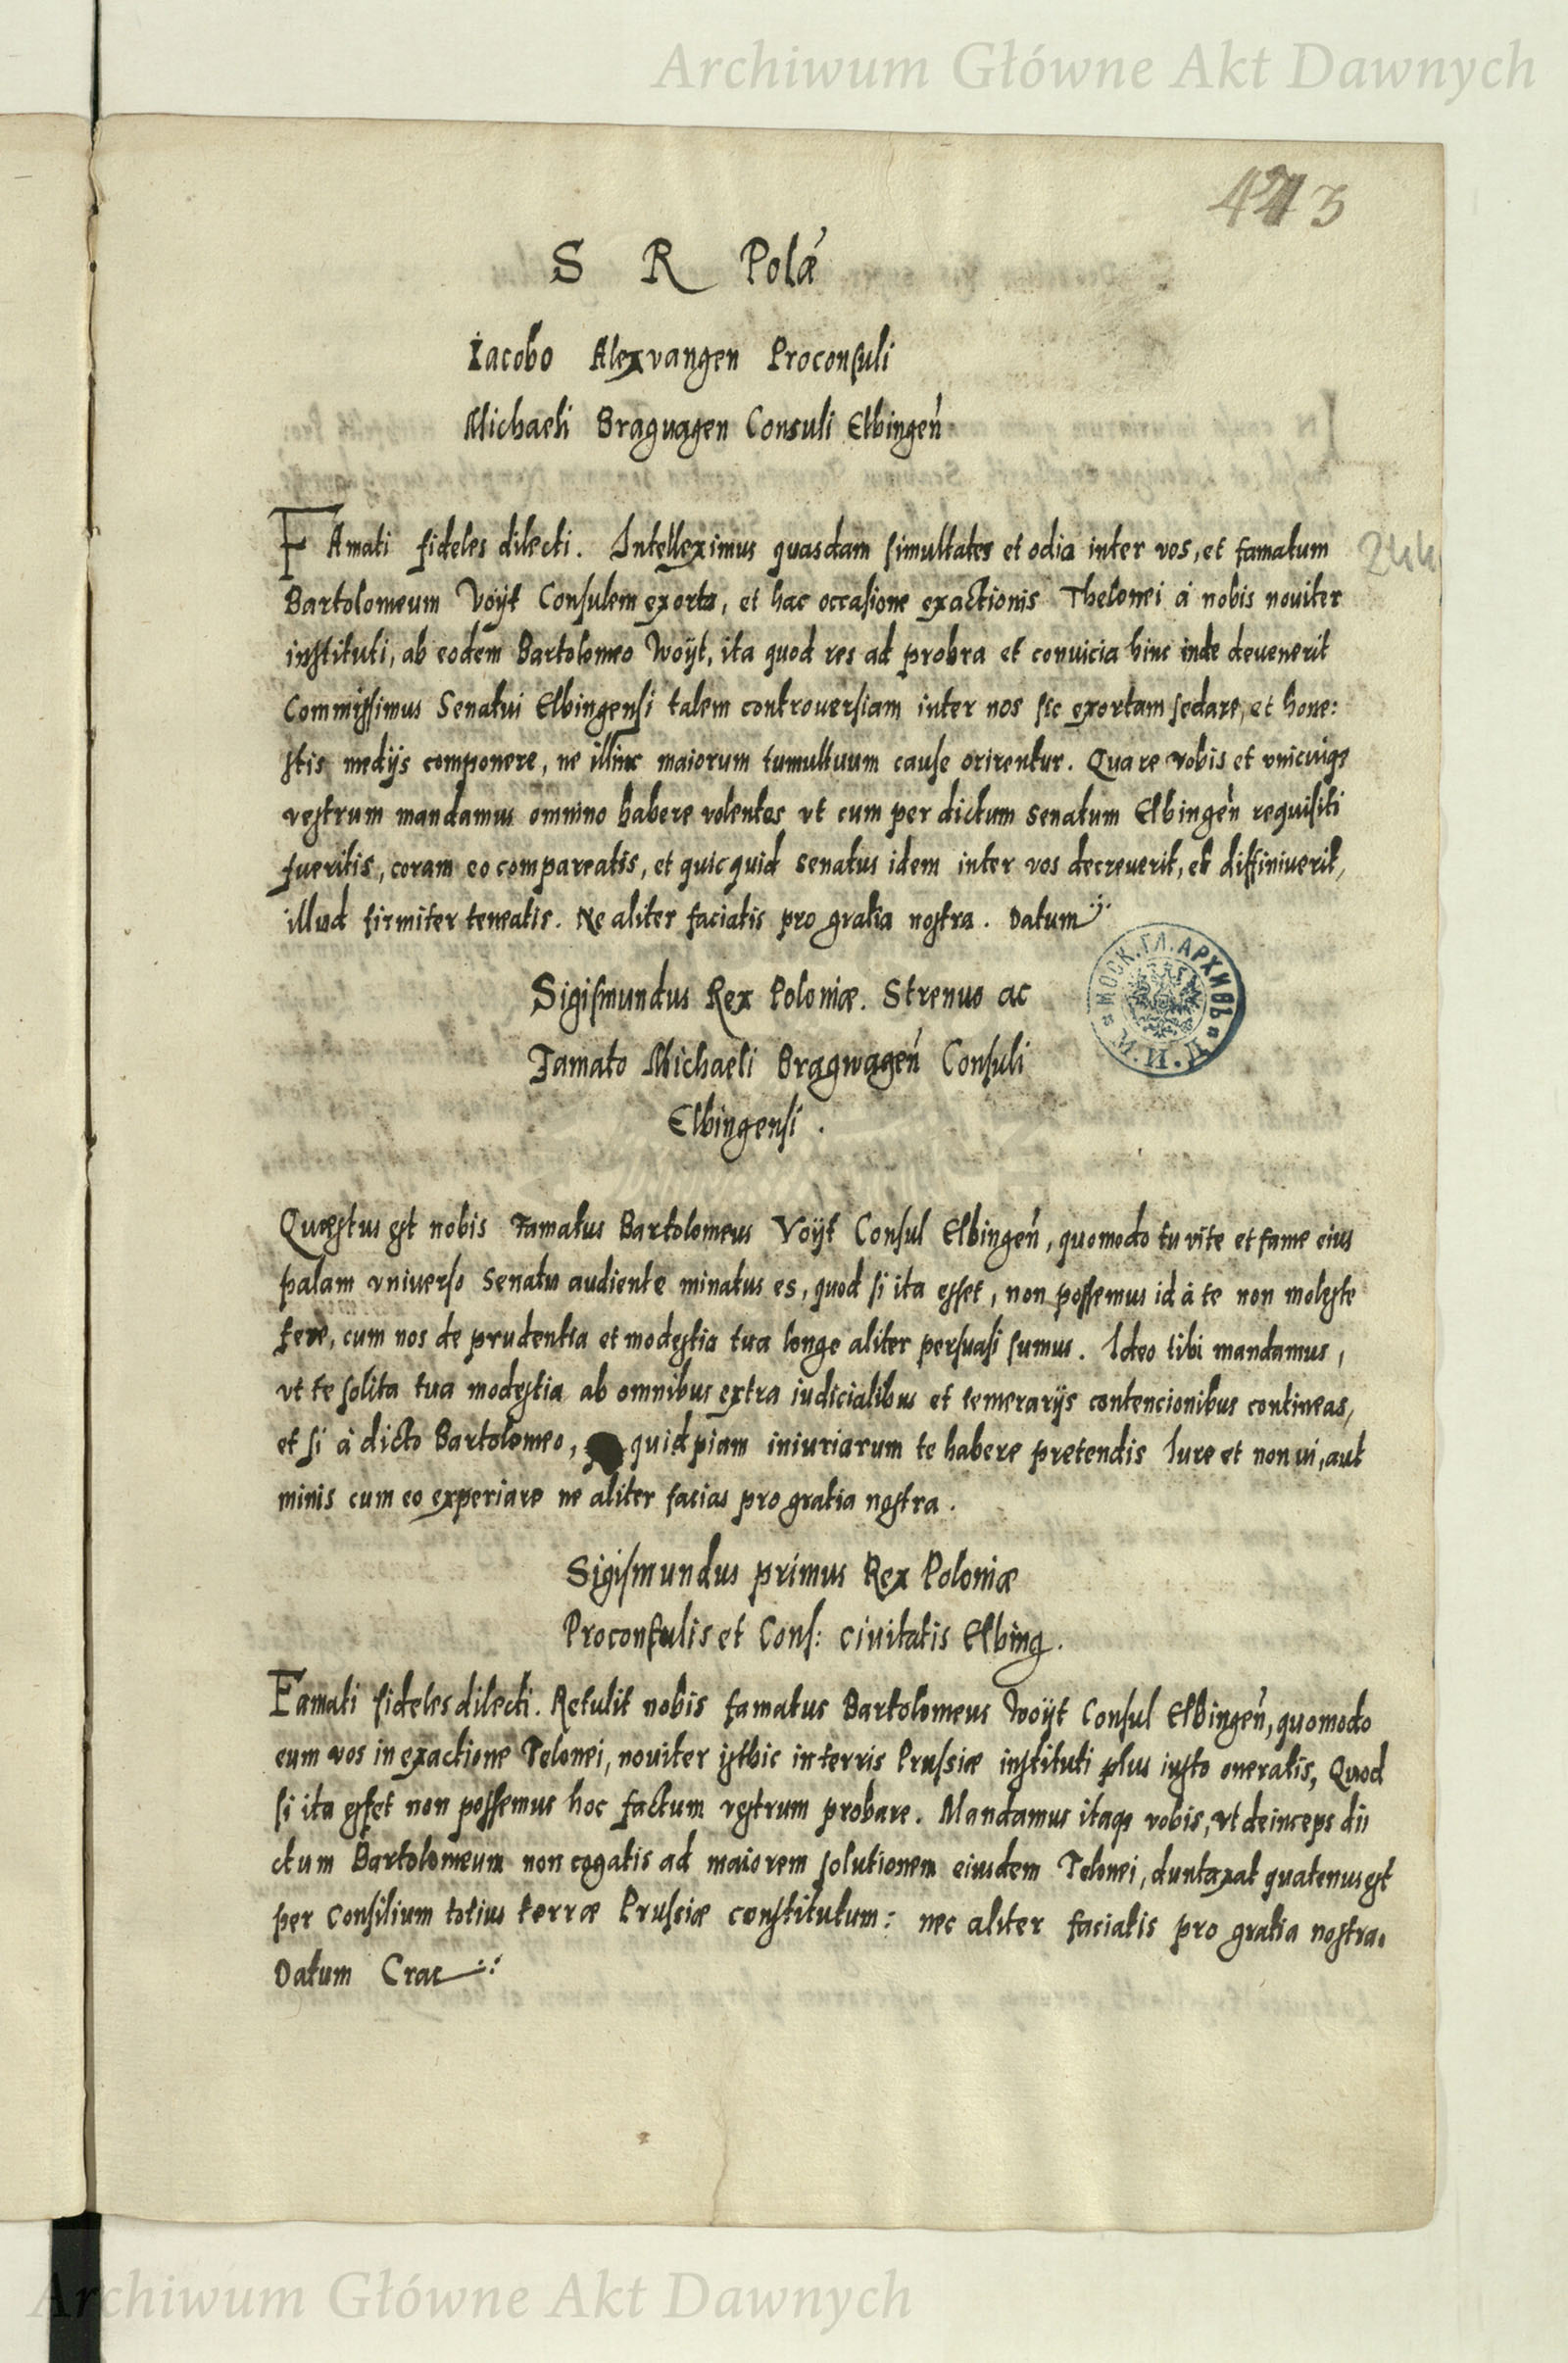 Archiwum Główne Akt Dawnych
S R Polæ
Iacobo Alexvangen Proconsuli
Michaeli Braguagen Consuli Elbingen̄
244
FAmati fideles dilecti. Intelleximus quasdam simultates et odia inter vos, et famatum
Bartolomeum Voÿt Consulem exorta, et hac occasione exactionis Thelonei á nobis nouiter
instituti, ab eodem Bartolomeo Woÿt, ita quod res ad probra et conuicia hinc inde deuenerit
Commissimus Senatui Elbingensi talem controuersiam inter nos sic exortam sedare, et hone:
stis medÿs componere, ne illinc maiorum tumultuum cause orirentur. Quare vobis et vnicuiqe
vestrum mandamus omnino habere volentes vt cum per dictum senatum Elbingen̄ requisiti
fueritis, coram eo compareatis, et quicquid senatus idem inter vos decreuerit, et diffiniuerit,
illud firmiter teneatis. Ne aliter faciatis pro gratia nostra. Datum
МОСК. ГЛ. АРХИВЪ
Sigismundus Rex Poloniæ. Strenuo ac
Famato Michaeli Bragwagen̄ Consuli
Elbingensi.
Quæstus est nobis Famatus Bartolomeus Voÿt Consul Elbingen̄, quomodo tu vite et fame eius
palam vniuerso Senatu audiente minatus es, quod si ita esset, non possemus id à te non moleste
fere, cum nos de prudentia et modestia tua longe aliter persuasi sumus. Ideo tibi mandamus,
vt te solita tua modestia ab omnibus extra iudicialibus et temerarÿs contencionibus contineas,
et si à dicto Bartolomeo, quidpiam iniuriarum te habere pretendis Iure et non ui, aut
minis cum eo experiare ne aliter facias pro gratia nostra.
Sigismundus primus Rex Poloniæ
Proconsulis et Cons: ciuitatis Elbing.
Famati fideles dilecti. Retulit nobis famatus Bartolomeus Woÿt Consul Elbingen̄, quomodo
eum vos in exactione Telonei, nouiter isthic in terris Prussiæ instituti plus iusto oneratis, Quod
si ita esset non possemus hoc factum vestrum probare. Mandamus itaqe vobis, vt deinceps di
ctum Bartolomeum non cogatis ad maiorem solutionem eiusdem Telonei, duntaxat quatenus est
per Consilium totius terræ Prussiæ constitutum: nec aliter faciatis pro gratia nostra.
Datum Crac
Archiwum Główne Akt Dawnych